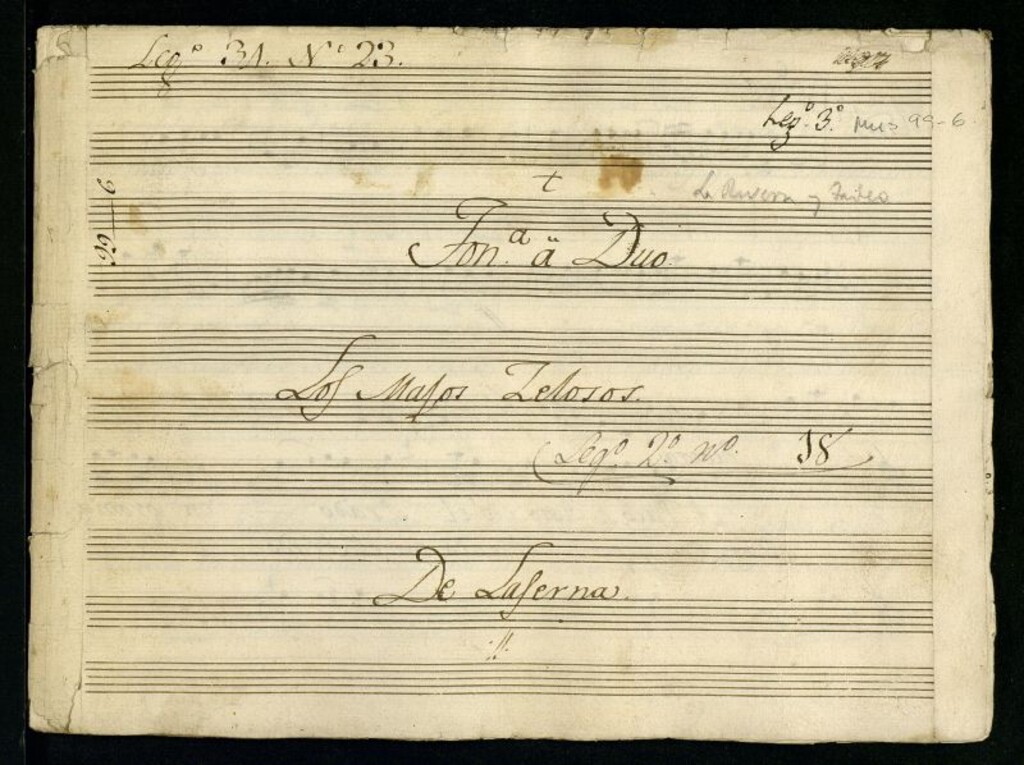 Leg.º 31. Nº 23.
Leg.º 3.º Mus 99-6
99-6
Ton.ª à Duo.
Los Majos Zelosos.
Leg.º 2.º nº. 18
De Laserna.